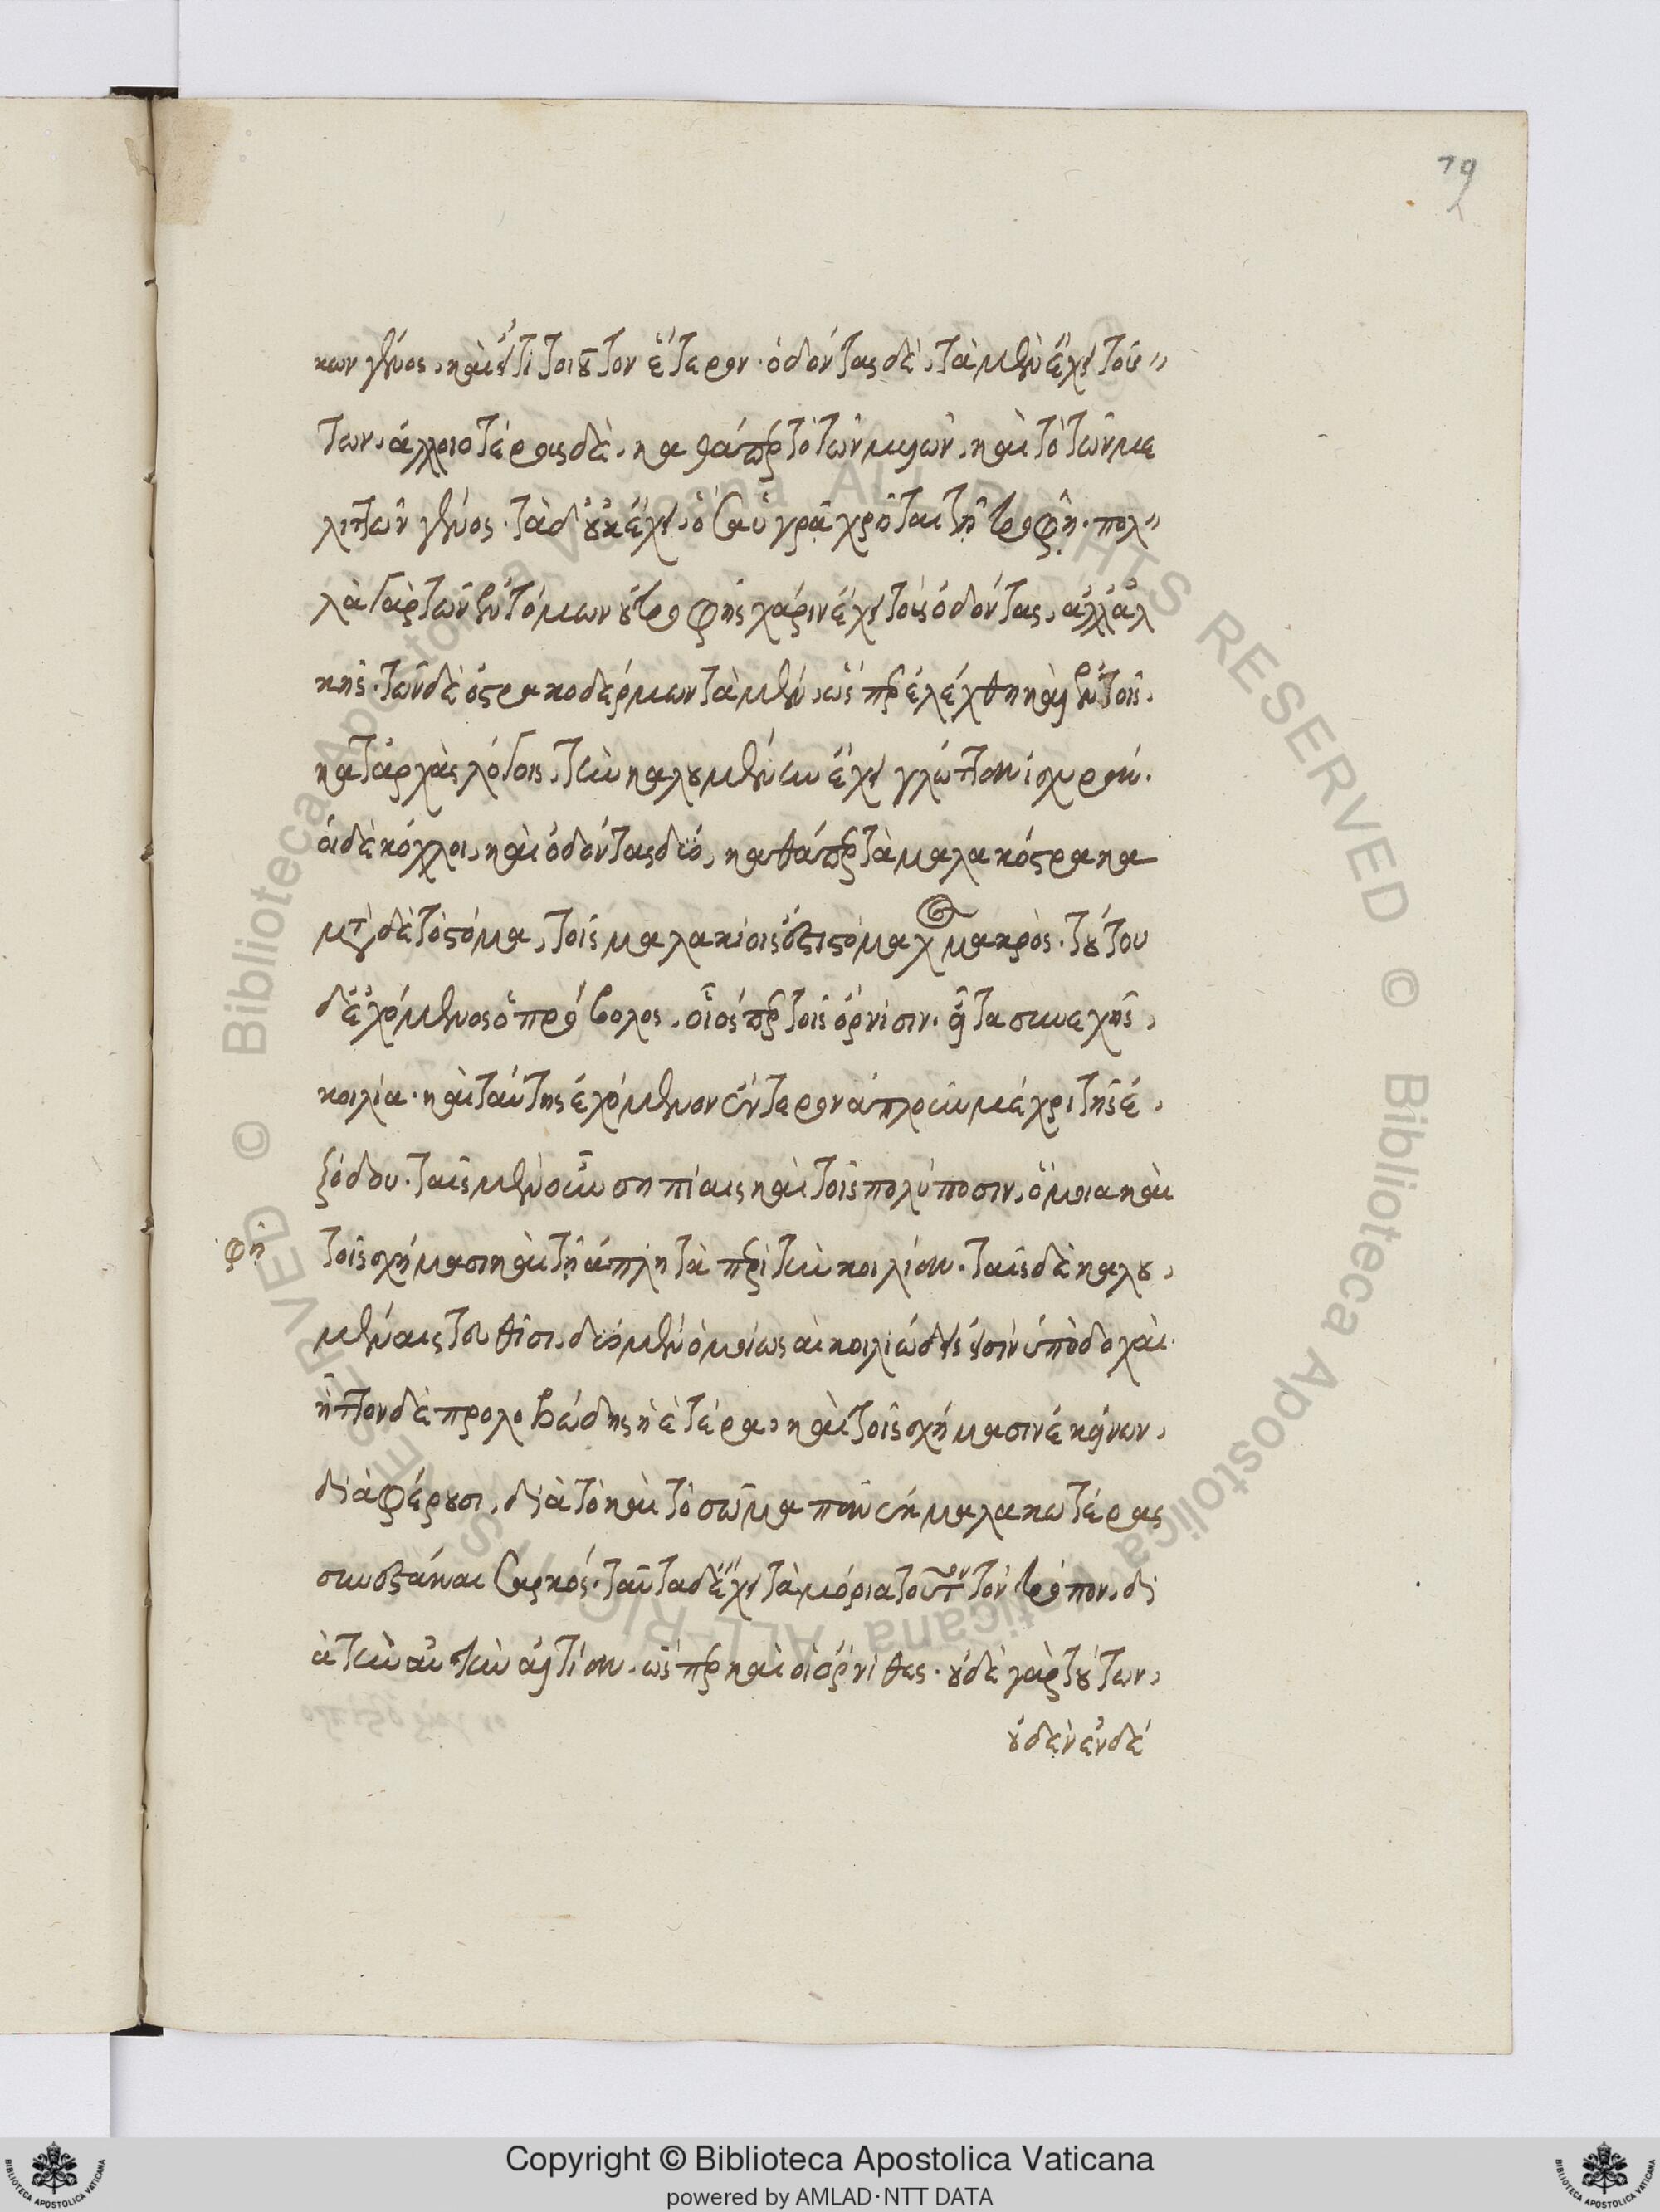 79
κων γένος, καὶ εἴ τι τοιοῦτον ἕτερον. ὀδόντας δὲ, τὰ μὲν ἔχει τού-
των, ἀλλοιοτέρους δὲ, καθάπερ τό τῶν μυιῶν, καὶ τὸ τῶν με
λιττῶν γένος. τὰ δ' οὐκ ἔχει, ὅσα ὑγρᾷ χρῆται τῇ τροφῇ. πολ-
λὰ γὰρ τῶν ἐντόμων οὐ τροφῆς χάριν ἔχει τοὺς ὀδόντας, ἀλλ' ἀλ
κῆς. τῶν δὲ ὀστρακοδέρμων τὰ μὲν, ὥσπερ ἐλέχθη καὶ ἐν τοῖς
κατ' ἀρχὰς λόγοις, τὴν καλουμένην ἔχει γλῶτταν ἰσχυράν.
οἱ δὲ κόχλοι, καὶ ὀδόντας δύο, καθάπερ τὰ μαλακόστρακα
μετὰ δὲ τὸ στόμα, τοῖς μαλακίοις ἐστι στόμαχος μακρός. τούτου
δ' ἐχόμενος ὁ πρόβολος, οἷός περ τοῖς ὄρνισιν. εἶτα συνεχὴς,
κοιλία. καὶ ταύτης ἐχόμενον ἔντερον ἁπλοῦν μέχρι τῆς ἐ-
ξόδου. ταῖς μὲν οὖν σηπίαις καὶ τοῖς πολύποσιν, ὅμοια καὶ
φη
τοῖς σχήμασι καὶ τῇ ἁπλῇ τὰ περὶ τὴν κοιλίαν. ταῖς δὲ καλου-
μέναις τευθίσι, δύο μὲν ὁμοίως αἱ κοιλιώδεις εἰσὶν ὑποδοχαὶ.
ἧττον δὲ προλοβώδης ἡ ἑτέρα, καὶ τοῖς σχήμασιν ἐκείνων,
διαφέρουσι, διὰ τὸ καὶ τὸ σῶμα πᾶν ἐκ μαλακωτέρας
συνεστάναι σαρκός. ταῦτα δ' ἔχει τὰ μόρια τοῦτον τὸν τρόπον, δι
ὰ τὴν αὐτὴν αἰτίαν, ὥσπερ καὶ οἱ ὄρνιθες. οὐδὲ γὰρ τούτων,
οὐδὲν ἐνδέ
Copyright © Biblioteca Apostolica Vaticana
powered by AMLAD·NTT DATA